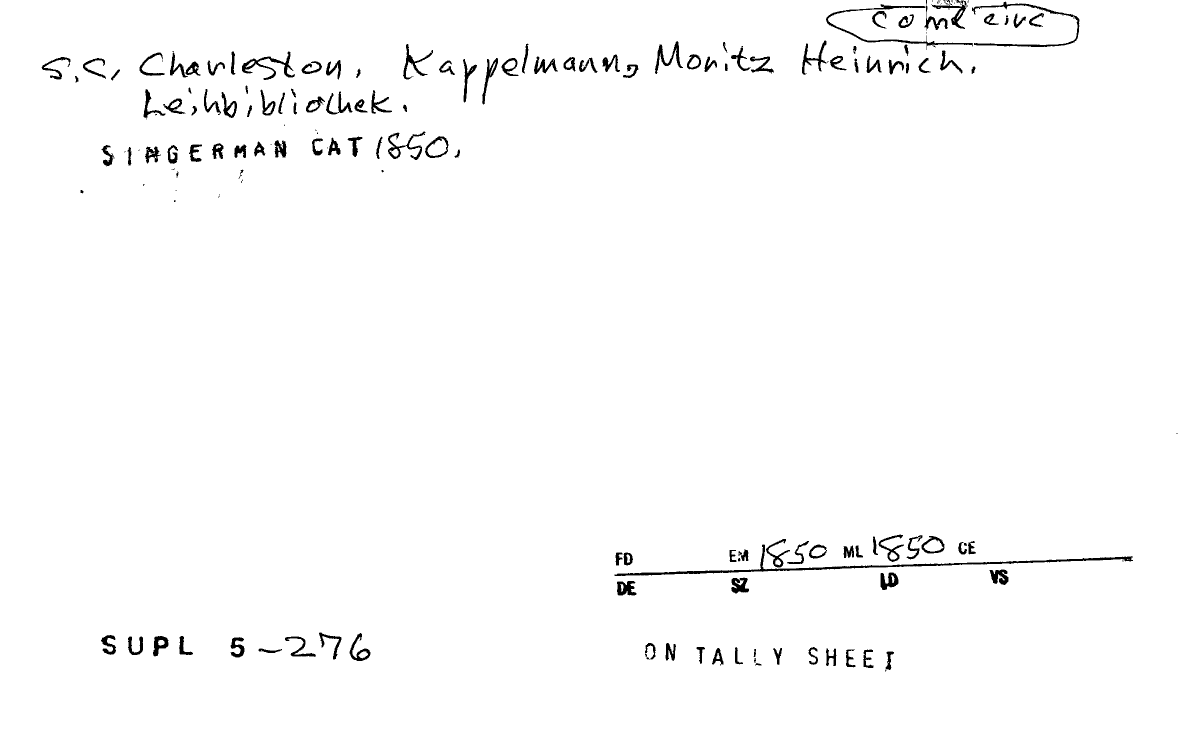 coml circ
S.C, Charleston, Kappelmann, Moritz Heinrich.
Leihbibliothek.
SINGERMAN CAT 1850,
FD EM 1850 ML 1850 CE
DE SZ LD VS
SUPL 5-276
ON TALLY SHEET